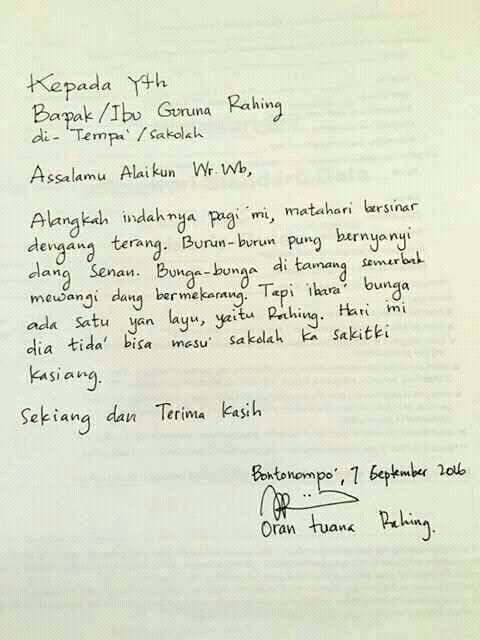 Kepada Yth
Bapak/Ibu Guruna Rahing
di- Tempa'/sakolah
Assalamu Alaikun Wr. Wb,
Alangkah indahnya pagi mi, matahari bersinar
dengang terang. Burun-burun pung bernyanyi
dang Senan. Bunga-bunga di tamang semerbah
mewangi dang bermekarang. Tapi ibara' bunga
ada satu yan layu, yaitu Rahing. Hari mi
dia tida' bisa masu' sakolah ka sakitki
kasiang.
Sekiang dan Terima Kasih
Bontonompo', 7 September 2016
Oran tuana Rahing.